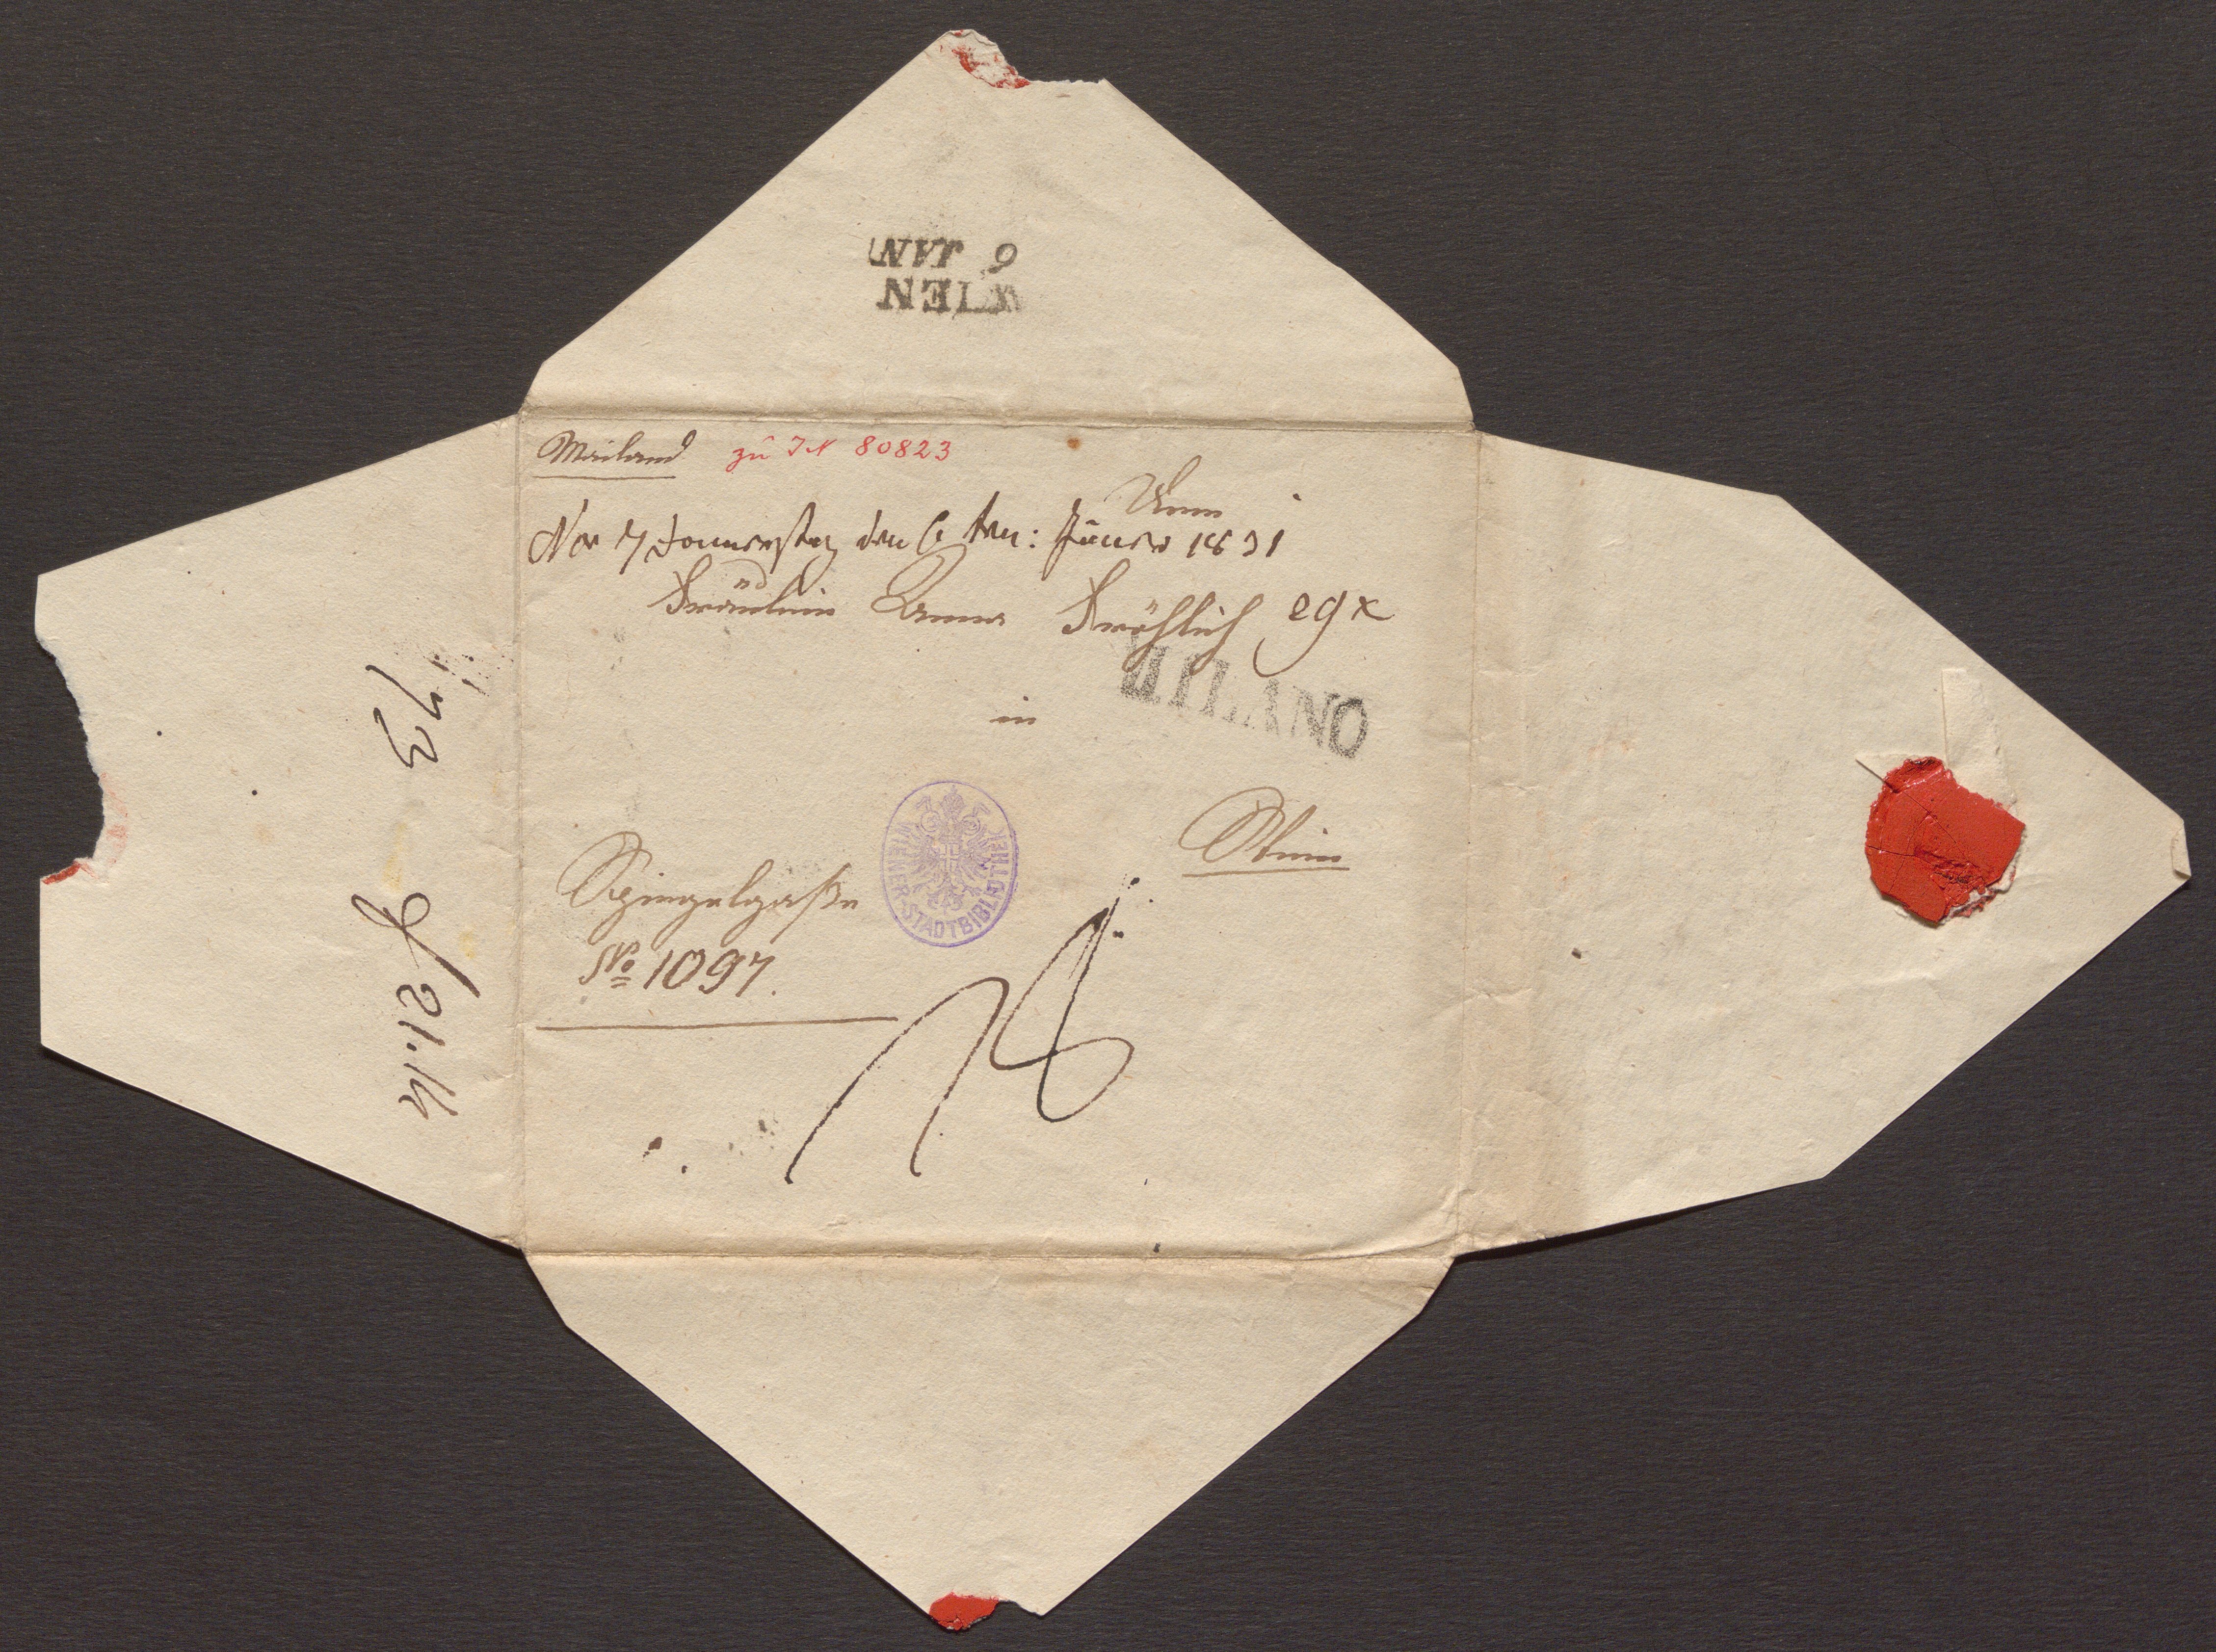 WIEN
6 JAN
Mailand zu IN 80823
No 7 Donnerstag den 6 ten: Jäner 1831
Fräulein Anna Fröhlich
MILANO
in
Wien
Spiegelgaße
No 1097.
WIENER-STADTBIBLIOTHEK
73
21.